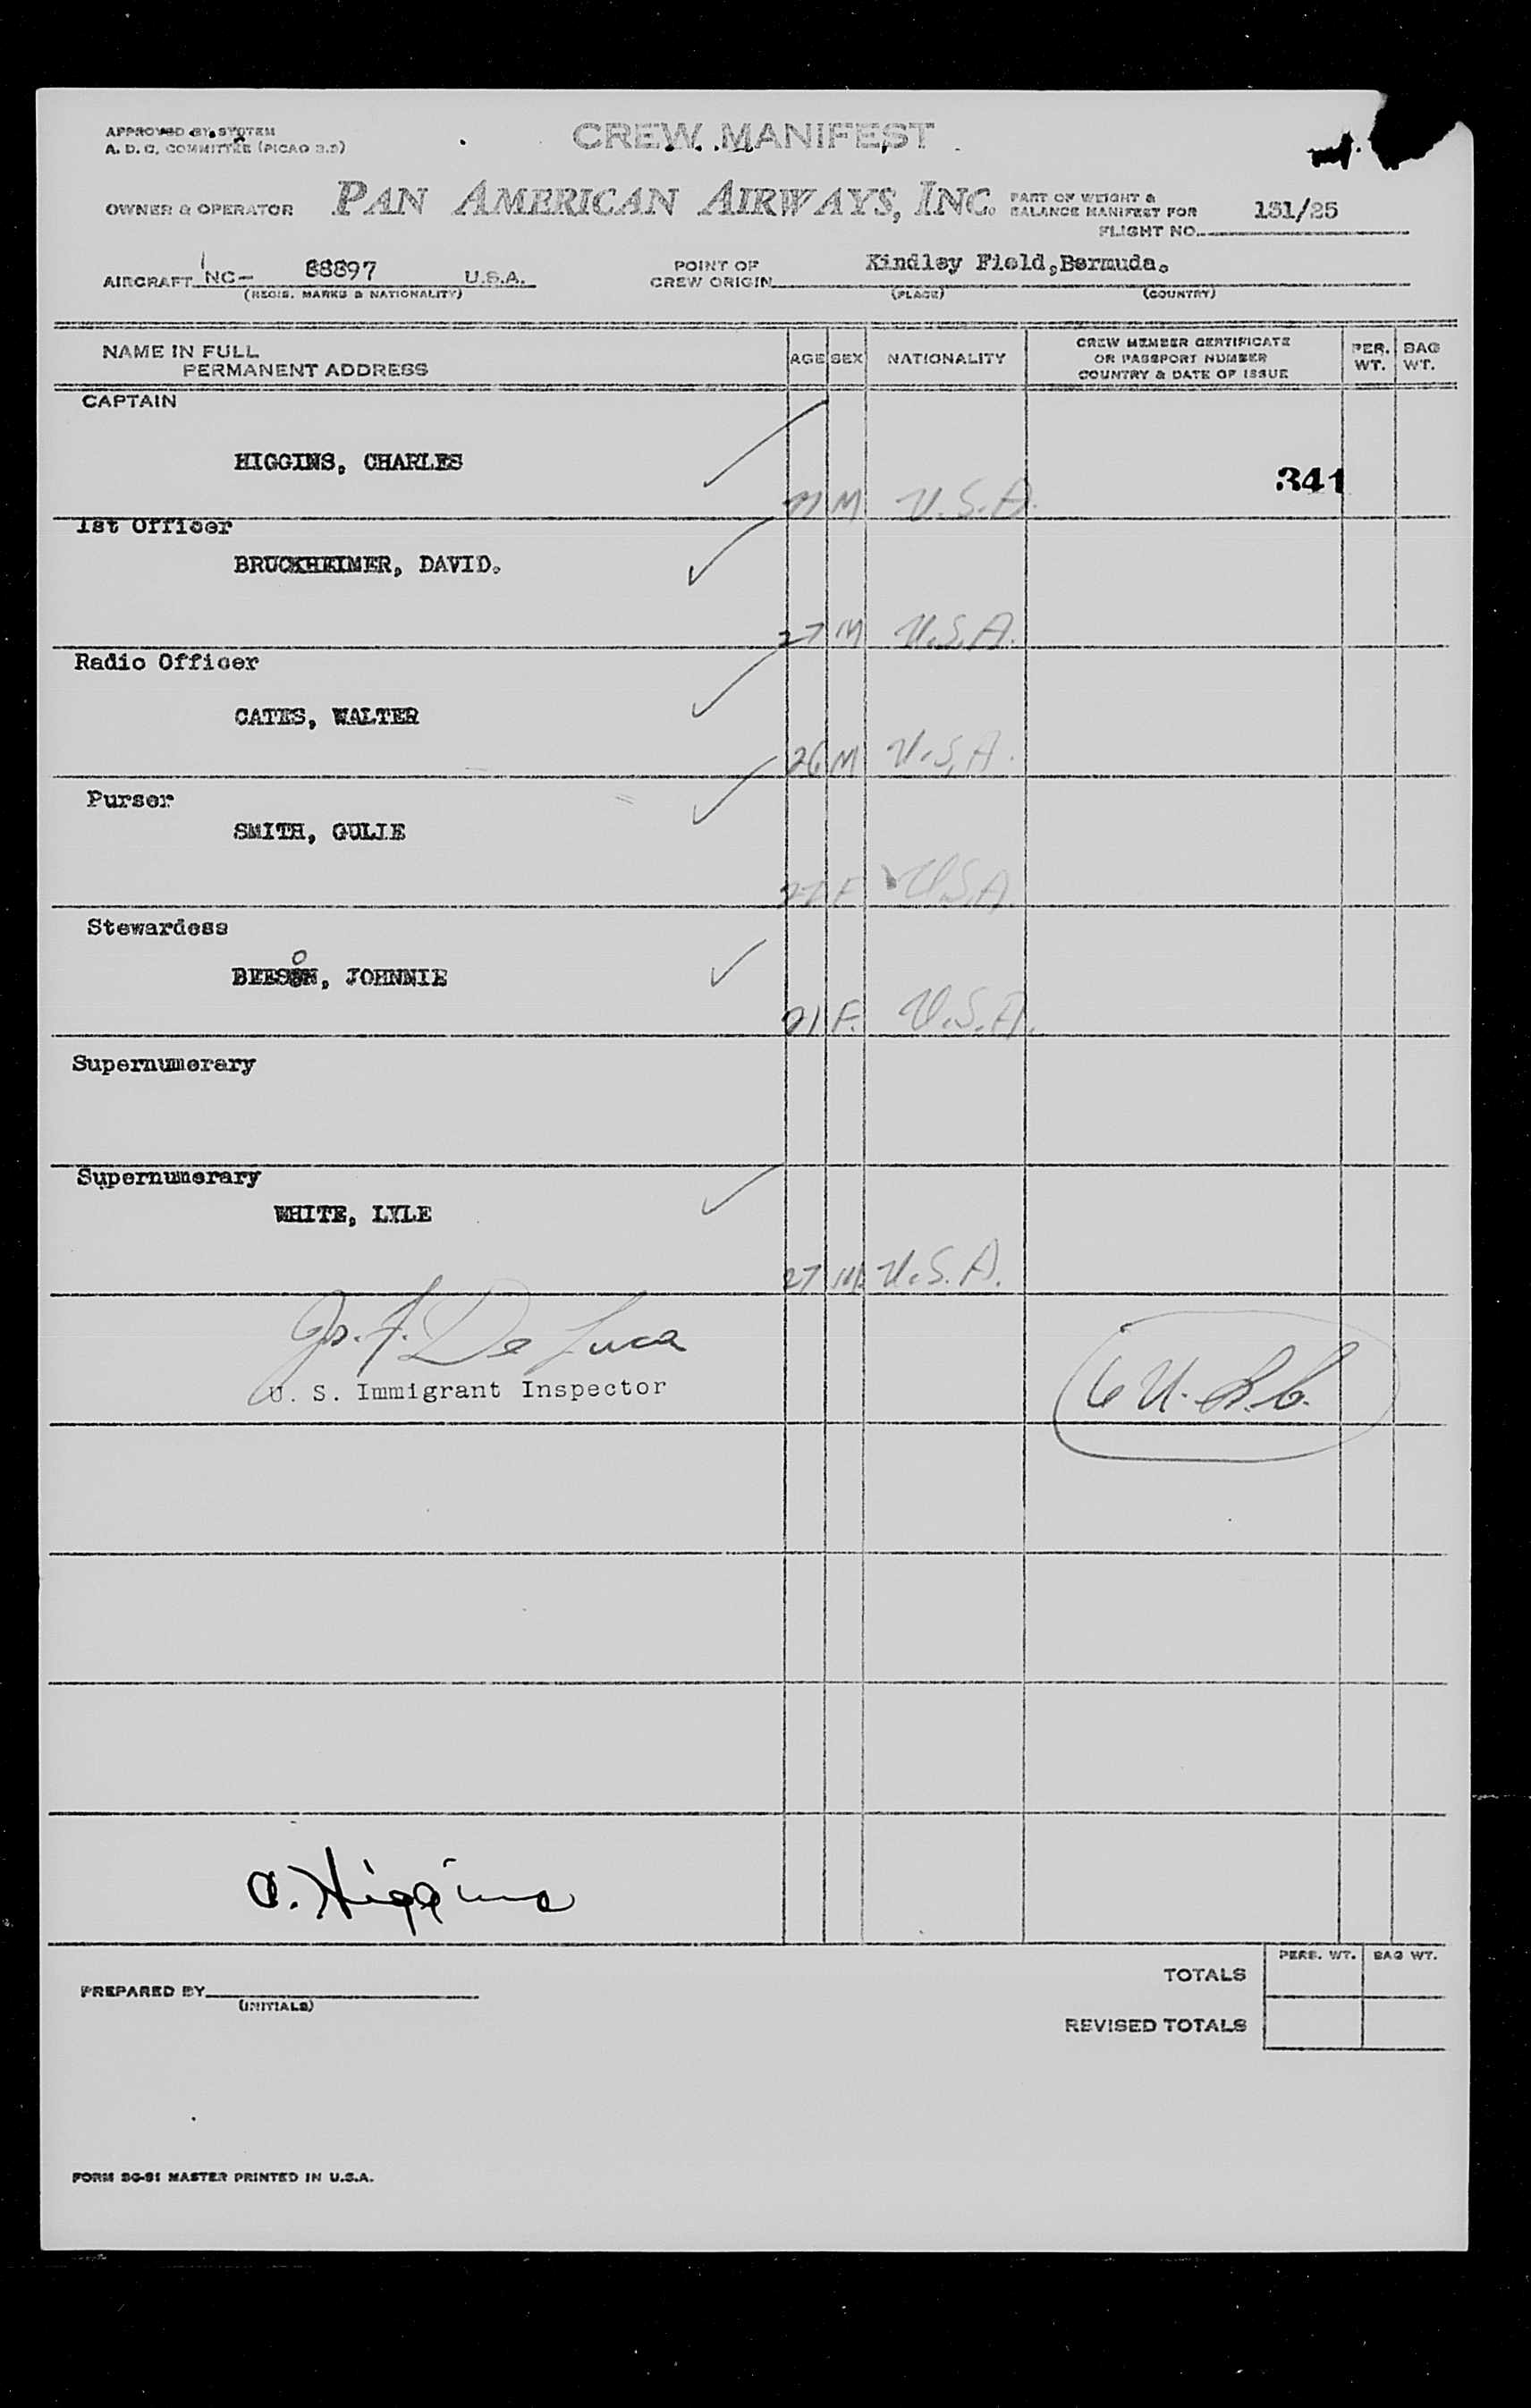 APPROVED BY SYSTEM
A. D. C. COMMITTEE (PICAO 2.5)
CREW MANIFEST
OWNER & OPERATOR PAN AMERICAN AIRWAYS, INC. PART OF WEIGHT &
BALANCE MANIFEST FOR
FLIGHT NO. 131/25
AIRCRAFT NC- 88897 U.S.A.
(REGIS. MARKS & NATIONALITY)
POINT OF
CREW ORIGIN Kindley Field,Bermuda.
(PLACE) (COUNTRY)
NAME IN FULL
PERMANENT ADDRESS
AGE SEX NATIONALITY
CREW MEMBER CERTIFICATE
OR PASSPORT NUMBER
COUNTRY & DATE OF ISSUE
PER. WT.
BAG WT.
CAPTAIN
HIGGINS, CHARLES
M U.S.A. 341
1st Officer
BRUCKHEIMER, DAVID.
27 M U.S.A.
Radio Officer
CATES, WALTER
26 M U.S.A.
Purser
SMITH, GULIE
27 F U.S.A.
Stewardess
BEESON, JOHNNIE
21 F. U.S.A.
Supernumerary
Supernumerary
WHITE, LYLE
27 M. U.S.A.
Jo. F. De Luca
U. S. Immigrant Inspector
6 U.S.C.
C. Higgins
PERS. WT. BAG WT.
TOTALS
PREPARED BY
(INITIALS)
REVISED TOTALS
FORM SG-91 MASTER PRINTED IN U.S.A.